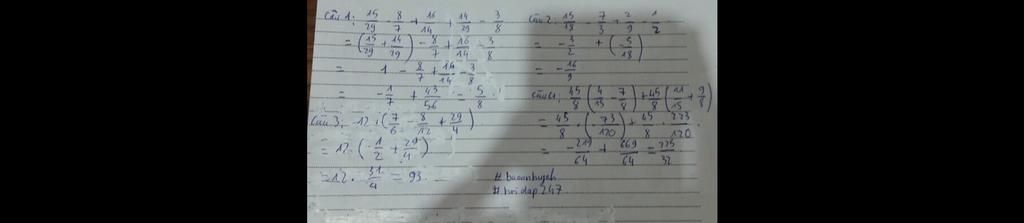 Câu 1: 15/29 - 8/7 + 16/14 + 14/29 - 3/8
= (15/29 + 14/29) - 8/7 + 16/14 - 3/8
= 1 - 8/7 + 14/14 - 3/8
= -1/7 + 43/56 = 5/8
Câu 3: -12 : (7/6 - 8/12 + 29/4)
= 12 · (1/2 + 29/4)
= 12 · 31/4 = 93
Câu 2: 15/18 - 7/3 + 2/9 - 1/2
= -3/2 + (-5/18)
= -16/9
Câu 4: 45/8 (4/15 - 7/8) + 45/8 (11/15 + 9/8)
= 45/8 · (73/120) + 45/8 · 223/120
= -219/64 + 669/64 = 225/32
#hoidap247